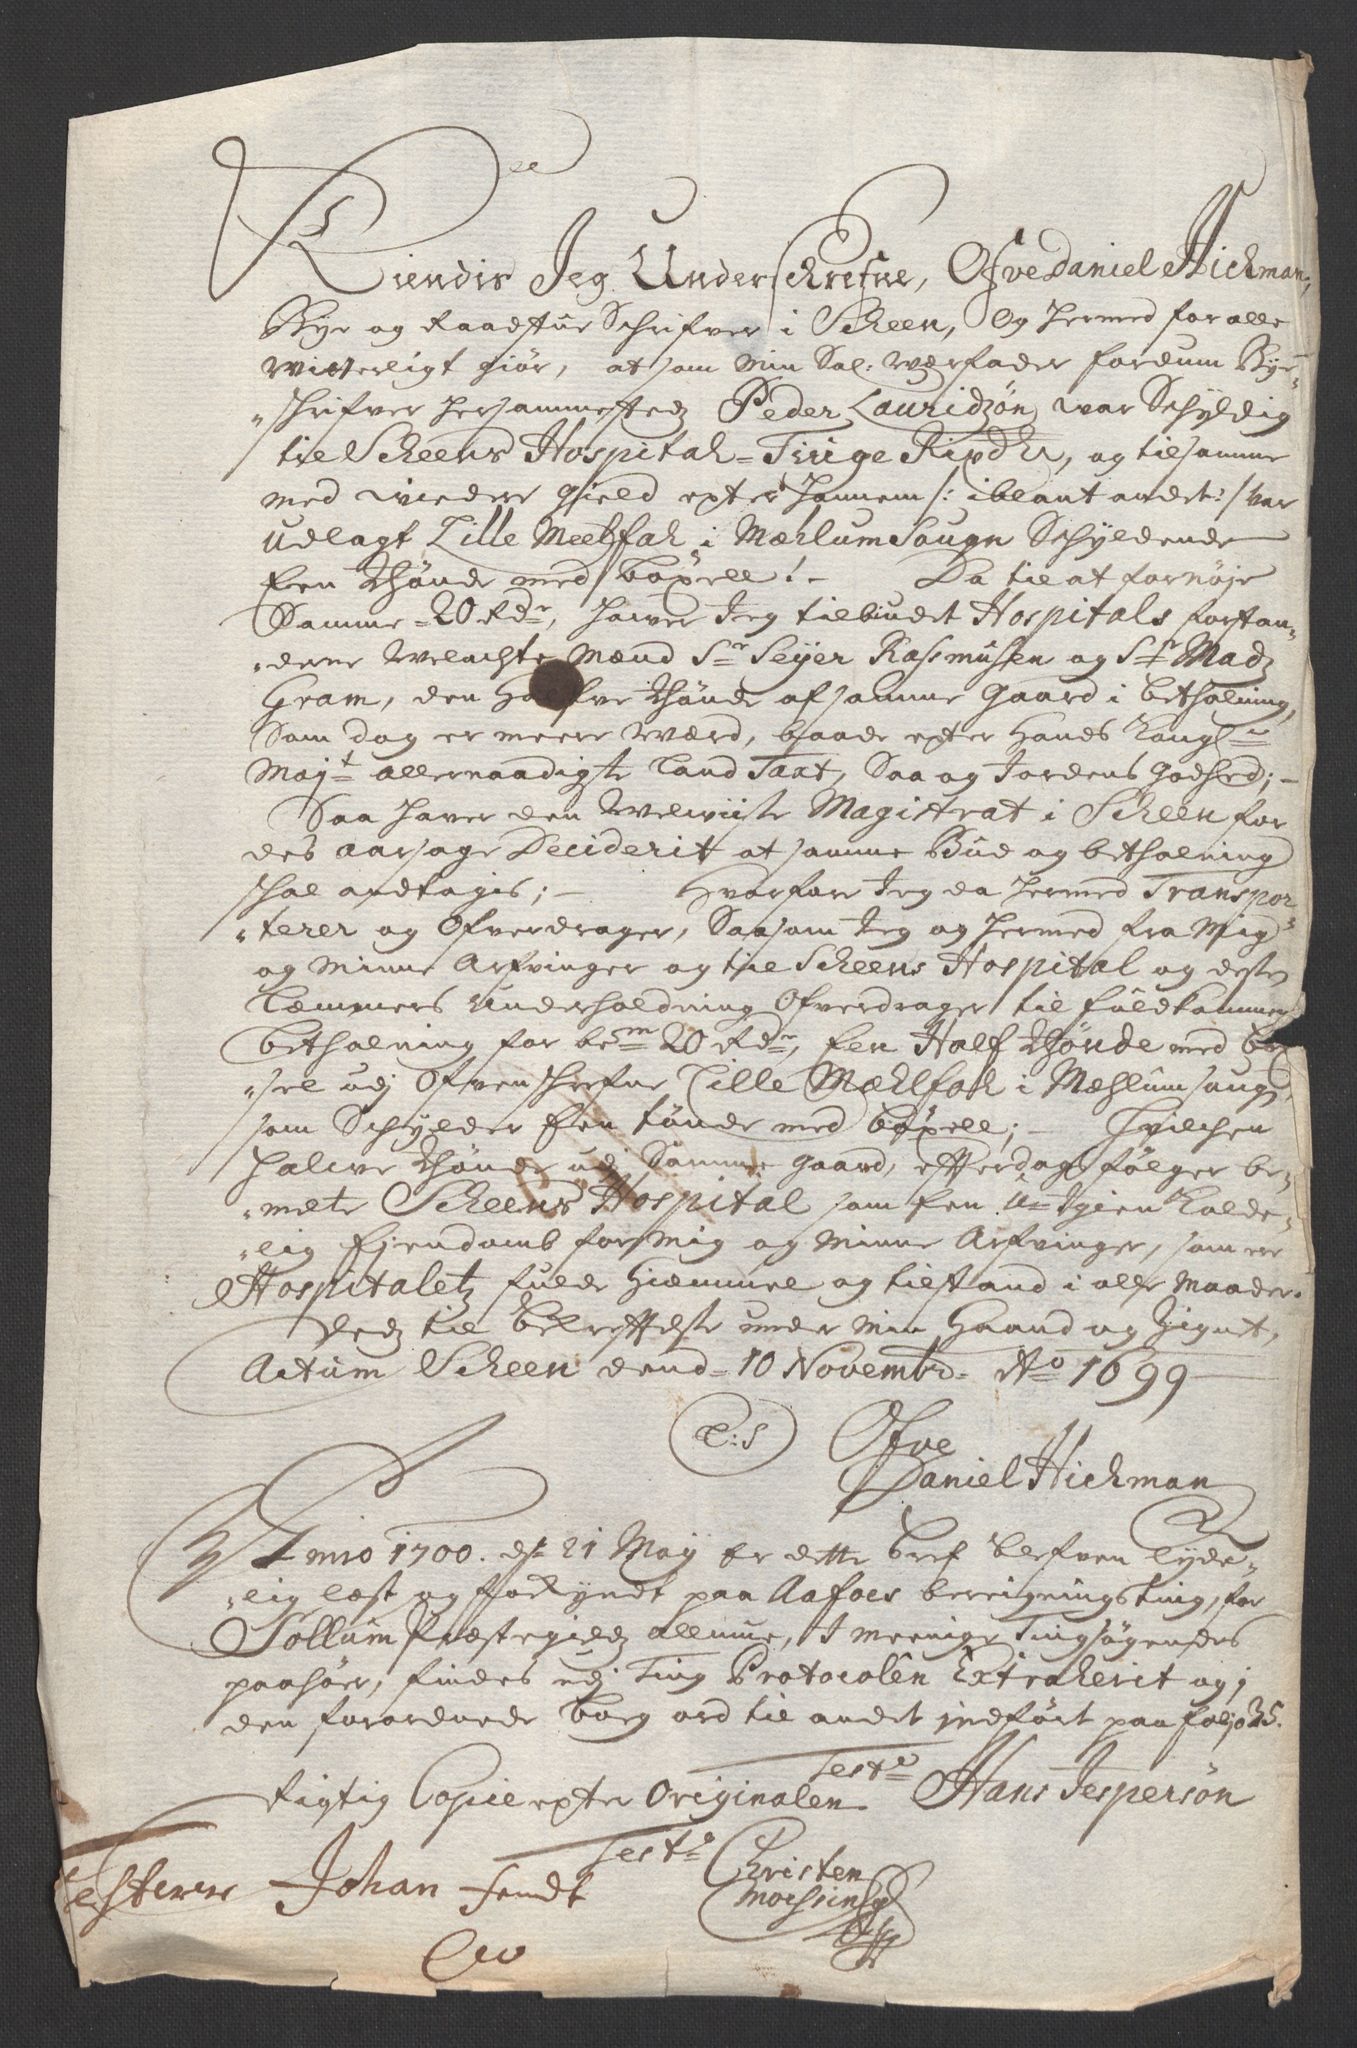 Kiendis Jeg Underschrefne, Ofve Daniel Hickman,
Bye og Raadstue Schrifver i Scheen, Og hermed for alle
witterligt giör, at som Min Sal: Værfader fordum Bye-
schrifver hersammestedz Peder Lauridzön war Schyldig
till Scheens Hospital Tiuge Rixdlr, og til samme
med widere gield epter hannem /: iblant andet :/ var
udlagt Lille Meehlfah i Mæhlum Sougn Schyldende
Een thönde med böxell. Da til at fornöje
Samme 20 Rdr, hawer Jeg tilbudet Hospitals forstan-
derne Welachte Mænd Sr Seyer Rasmusen og Sr Madz
Gram, den Halfve thönde af samme gaard i betholning,
Som dog er meere Værd, baade epter Hands Kongl:
Mayt allernaadigste Land Taxt, Saa og Jordens godhed;
Saa haver den Welwiise Magistrat i Scheen for
des aarsage Deciderit at samme Bud og betholning
schal andtagis; Hvorfore Jeg da hermed Transpor-
terer og Ofverdrager, Saasom Jeg og hermed fra Mig
og Minne Arfvinger og till Scheens Hospital og dessen
Læmmers Underholdning Ofverdrager til fuldkommen
betholning for bem 20 Rdr, Een Half thönde med böx-
sel udj Ofvenschrefne Lille Mæhlfah i Mæhlum Sougn
som Schylder Een tönde med böxell; Hvilchen
halwe thönde udj Samme gaard, efter dags fölger be-
melte Scheens Hospital som Een U-Igien Kalde-
lig Ejendomb for Mig og Minne Arfvinger, som er
Hospitaletz fulde Hiemmel og tilstand i alle Maader.
Dedz til Bekreftelse under Min Haand og Zignet,
Actum Scheen dend 10 Novembr. Ao 1699
L:S Ofve
Daniel Hickman
Anno 1700. d. 21 Maij er dette bref blefven lyde-
lig læst og forkyndt paa Aafoes bereigningsting, for
Sollum Præstegieldz allmue, I meenige Tingsögendes
paahör, findes udj Ting Protocolen Extraherit og j
den forordnede boeg ord til andet jndfört paa folio 35.
Test Hans Jespersön
Rigtig Copie epter Originalen
Test Christen
Testerer Johan Fendt